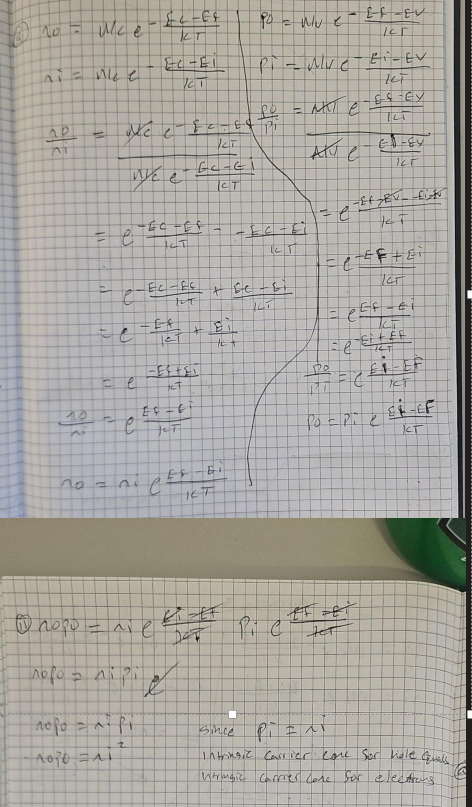 no = Nc e^-(Ec-Ef)/KT
ni = Nc e^-(Ec-Ei)/KT
no/ni = Nc e^-(Ec-Ef)/KT / Nc e^-(Ec-Ei)/KT
= e^-(Ec-Ef)/KT - -(Ec-Ei)/KT
= e^-(Ec-Ef)/KT + (Ec-Ei)/KT
= e^-Ef/KT + Ei/KT
= e^(-Ef+Ei)/KT
no/ni = e^(Ef-Ei)/KT
no = ni e^(Ef-Ei)/KT
Po = Nv e^-(Ef-Ev)/KT
Pi = Nv e^-(Ei-Ev)/KT
Po/Pi = Nv e^-(Ef-Ev)/KT / Nv e^-(Ei-Ev)/KT
= e^(-Ef-Ev--Ei-Ev)/KT
= e^(-EF+Ei)/KT
= e^(EF-Ei)/KT
= e^(-Ei+EF)/KT
Po/Pi = e^(Ei-EF)/KT
Po = Pi e^(Ei-EF)/KT
nopo = ni e^(Ei-EF)/KT Pi e^(EF-Ei)/KT
nopo = niPi e
nopo = niPi since Pi = ni
nopo = ni² Intrinsic carrier conc for hole equals
intrinsic carrier conc for electrons